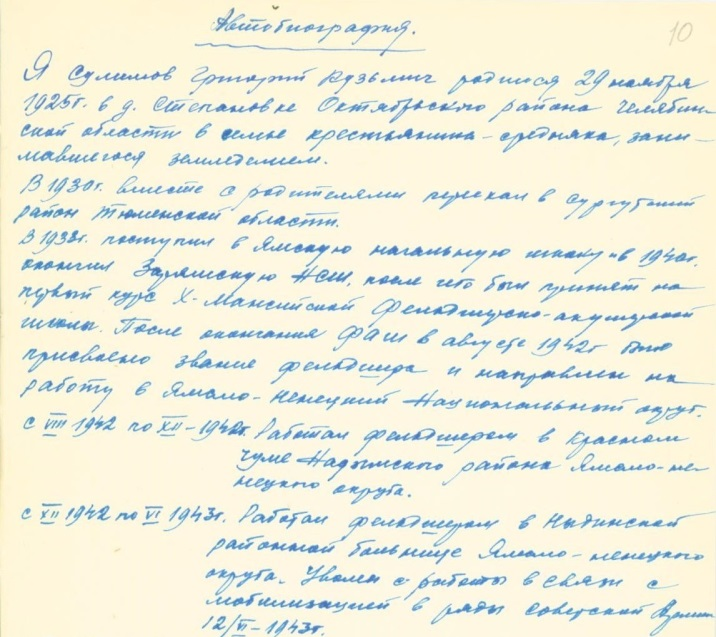 Автобиография.
10
Я Сулимов Григорий Кузьмич родился 29 ноября
1925г. в д. Степановке Октябрьского района Челябин-
ской области в семье крестьянина-средняка, зани-
мавшегося земледелием.
В 1930г. вместе с родителями переехал в Сургутский
район Тюменской области.
В 1933г. поступил в Ямскую начальную школу и в 1940г.
окончил Зарямскую НСШ, после чего был принят на
первый курс Х-Мансийской Фельдшерско-акушерской
школы. После окончания ФАШ в августе 1942г было
присвоено звание фельдшера и направлен на
работу в Ямало-Ненецкий Национальный округ.
с VIII 1942 по XII-1942г. Работал фельдшером в Красном
чуме Надымского района Ямало-не-
нецкого округа.
с XII 1942 по VI 1943г. Работал фельдшером в Ныдинской
районной больнице Ямало-ненецкого
округа. Уволен с работы в связи с
мобилизацией в ряды Советской Армии
12/VI-1943г.